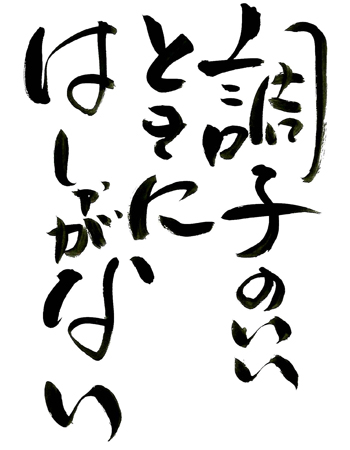 調子のいい
ときに
はしゃがない